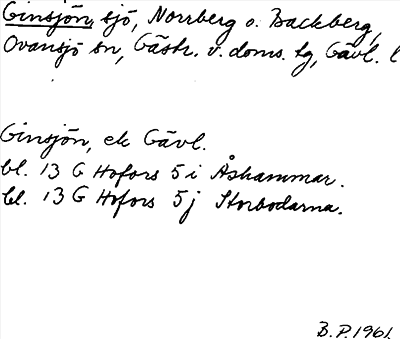 Ginsjön, sjö, Norrberg o. Backberg,
Ovansjö sn, Gästr. v. doms. tg, Gävl. l
Ginsjön, ek Gävl.
bl. 13 G Hofors 5 i Åshammar.
bl. 13 G Hofors 5 j Storbodarna.
B.P. 1961